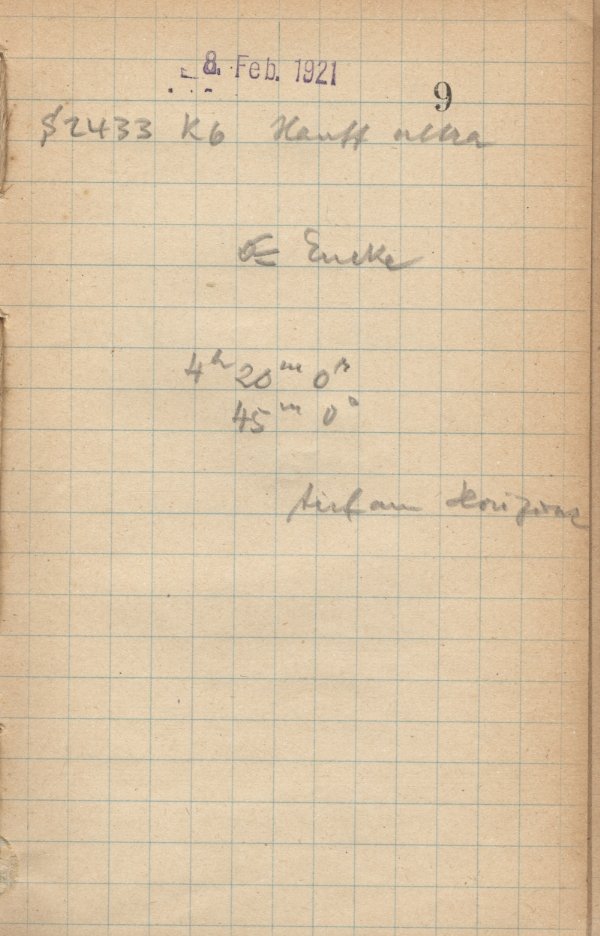 8. Feb. 1921
9
$2433 K6 Hauff ultra
Encke
4h 20m 0s
45m 0s
tief am Horizont